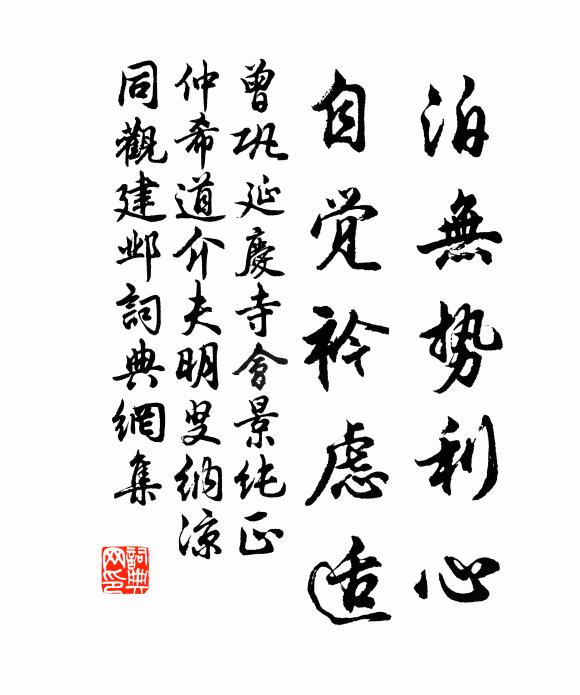 泊無势利心
自觉衿虑适
曾巩延慶寺會景纯正
仲希道介夫明叟纳凉
同觀建邺詞典網集
詞典网印